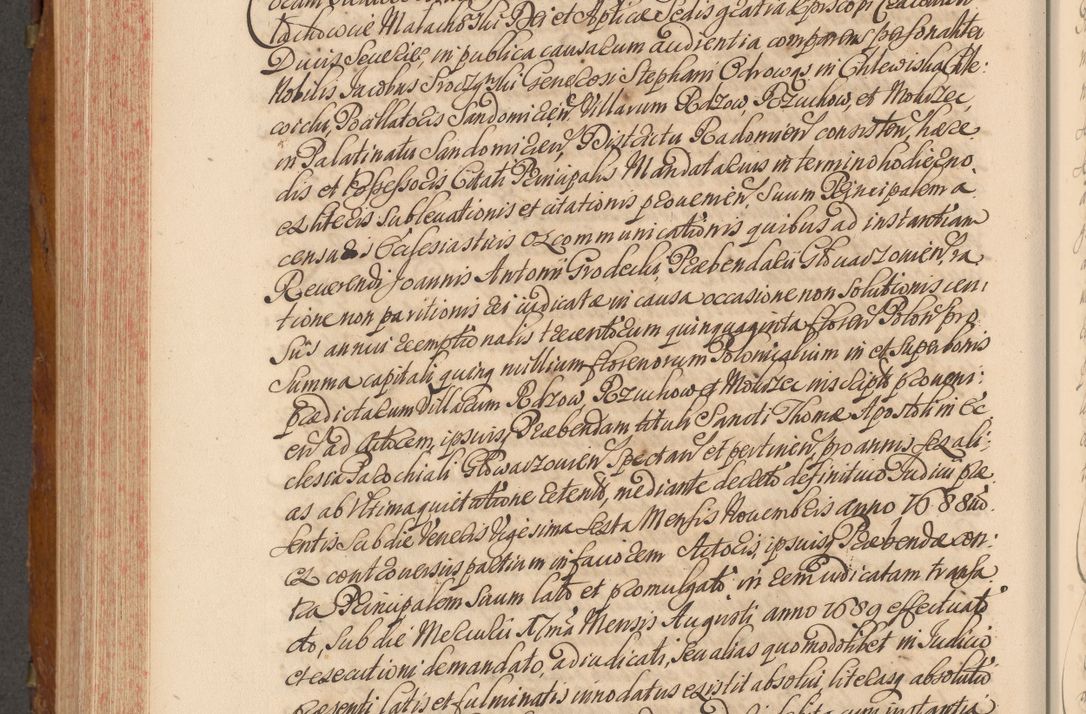 tochocice Małachowski Dei et Aplicæ Sedis gratia Episcopi Cracovien
Ducis Severiæ, in publica causarum audientia comparens personaliter
Nobilis Jacobus Generosi Stephani Odrowąs in Chlewiska Chle:
Sandomirien, Villarum Rdzow, Rzuchow, et Mokrzec,
in Palatinatu Sandomirien, Districtu Radomien consisten, hære
dis et Possessoris Citati Principalis Mandatarius in termino hodierno
ex literis sublevationis et citationis provenien, Suum Principalem a
censuris Ecclesiasticis excommunicationis quibus ad instantiam
Reverendi Joannis Antonii Grodecki, Præbendarii Głowaczowien, ra
tione non paritionis rei iudicatæ in causa occasione non solutionis cen:
sus annui reemptionalis trecentorum quinquaginta floren Polon pro
Summa capitali quinq millium florenorum Polonicalium in et super bonis
prædictarum Villarum Rdzow, Rzuchow et Mokrzec inscript proveni:
en ad Actorem, ipsiusq Præbendam tituli Sancti Thomæ Apostoli in Ec
clesia Parochiali Głowaczowien Spectan et pertinen, pro annis ali:
as ab Ultima quitatione retent, mediante decreto definitivo Judicii præ
sentis sub die Veneris Vigesima sexta Mensis Novembris anno 1688vo
ex controversiis partium in favorem Actoris, ipsiusq Præbendæ con:
tra Principalem Suum lato et promulgato in rem iudicatam transa
cto, sub die Mercurii Mensis Augusti anno 1689 effectuato
et executioni demandato, adiudicati, seu alias quomodolibet in Judicio
præsenti latis et fulminatis innodatus existit absolvi, literasq absolutio